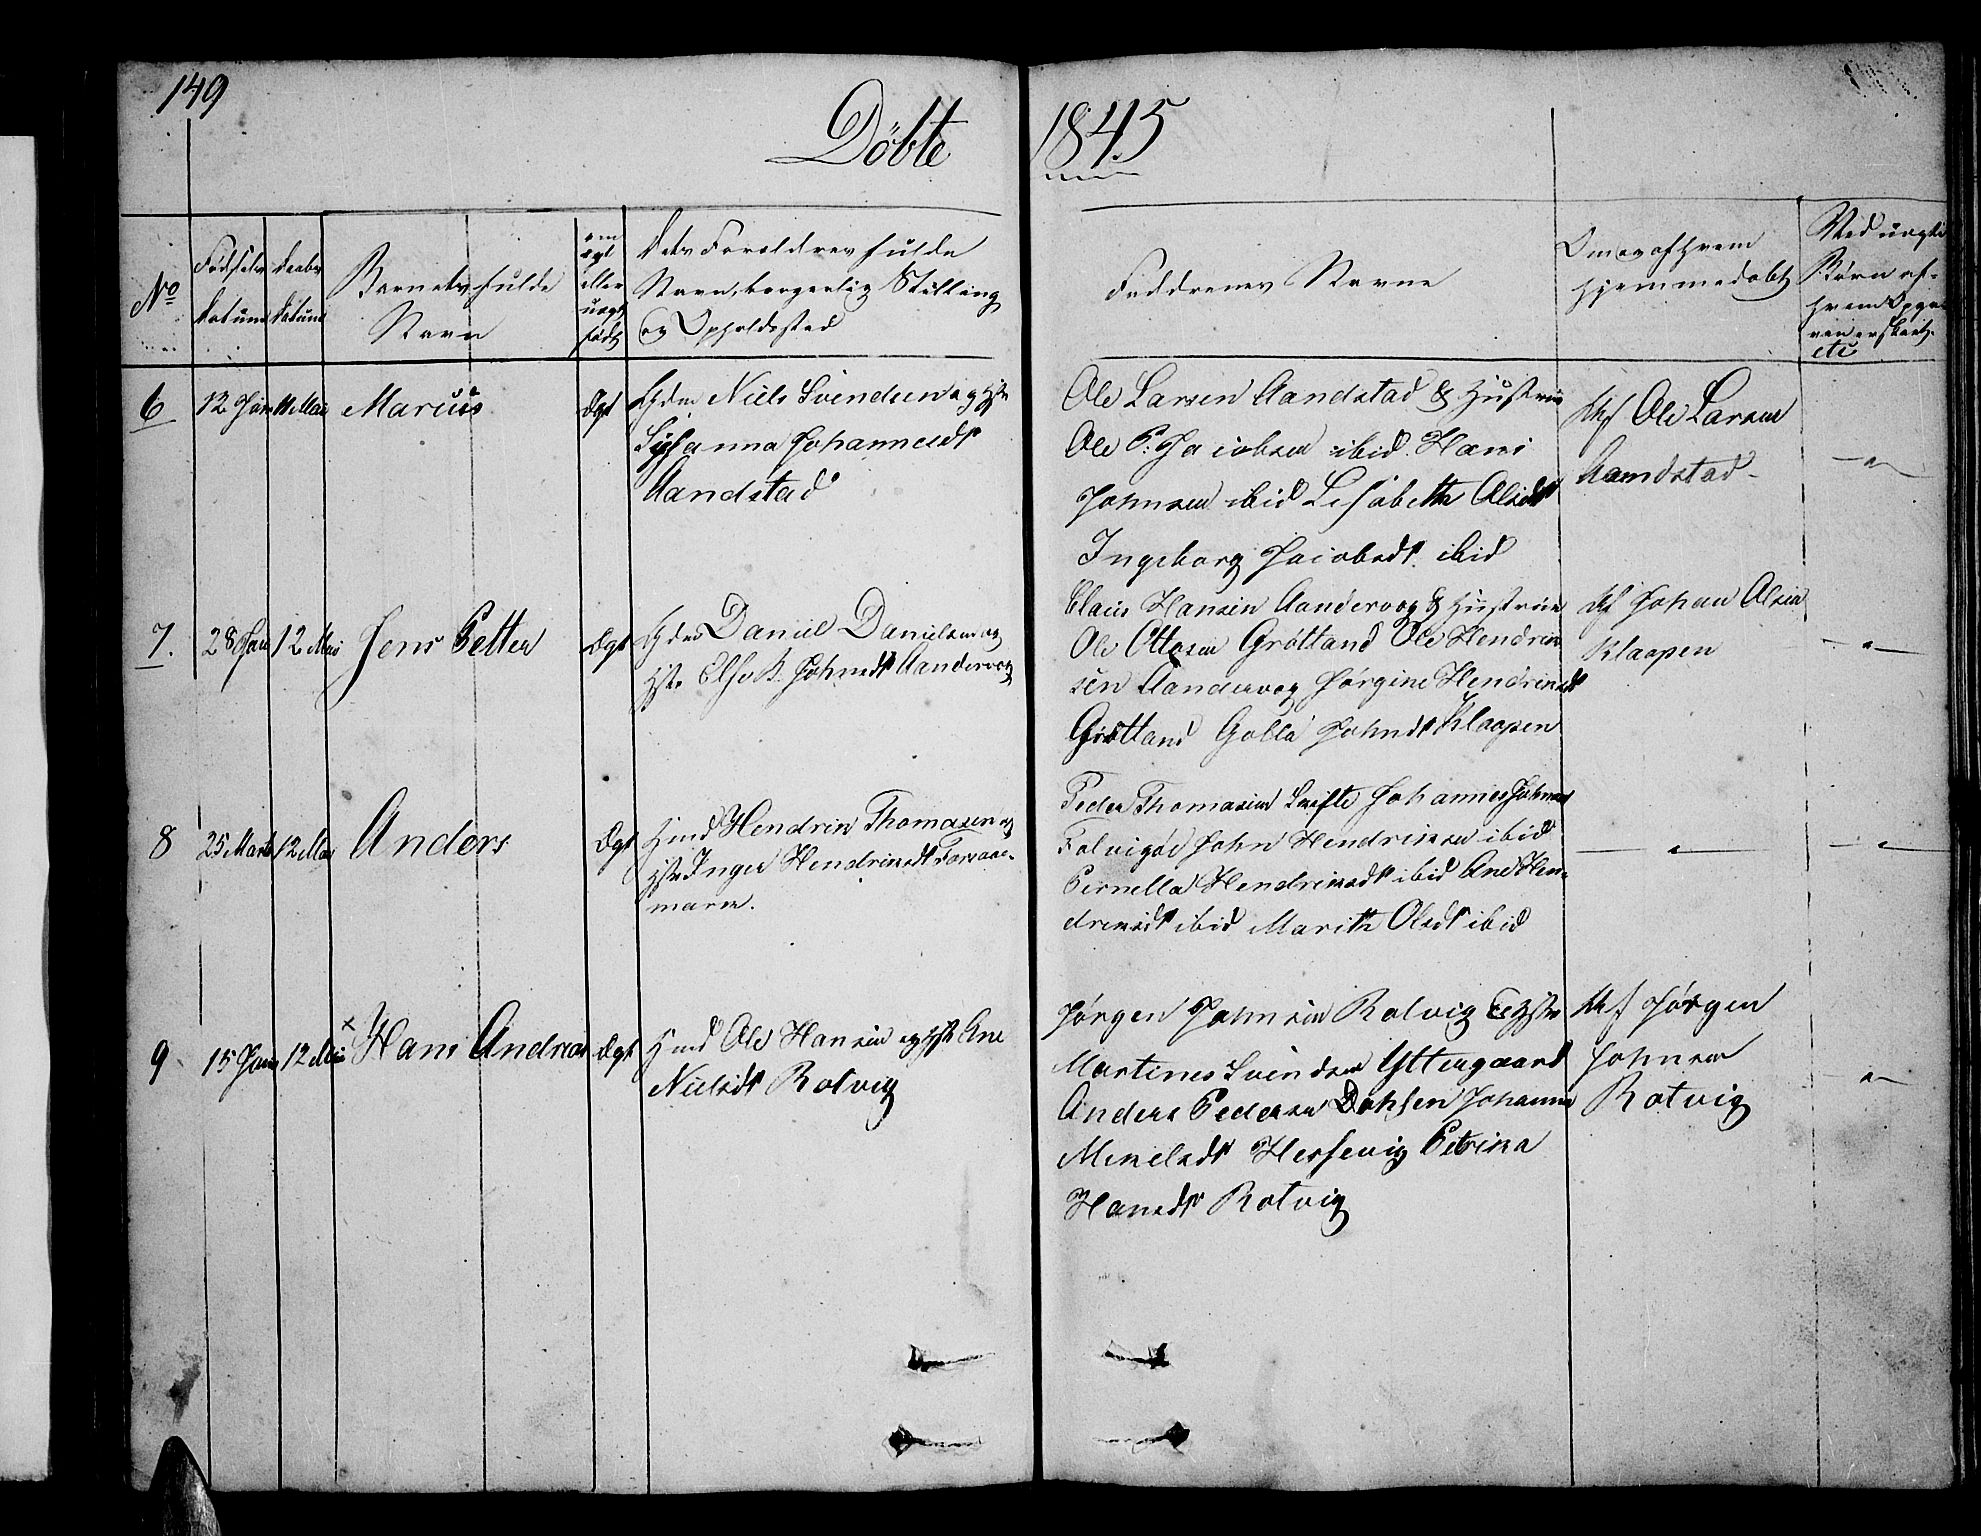 149
Döbte 1845
No
Födsels Datum
Daabs Datum
Barnets fulde Navn
om ægt eller uægt född
Dets Forældres fulde Navn, borgerlig Stilling og Opholdssted
Faddrenes Navne
Om og af hvem hjemmedöbt
Ved uægte Börn af hvem
etc
6 12 Jan 11 Mai Marcus Ægt Gdm Niels Svendsen og Hst
Susanna Johannesdt
Aandstad
Ole Larsen Aandstad & Hustrue
Ole P. Jacobsen ibid. Hans
Johnsen ibid Lisabeth Olsdt
Ingeborg Jacobsdt. ibid
Af Ole Larsen
Aandstad
7. 28 Jan 12 Mai Jens Petter Ægt Gdm Daniel Danielsen og
Hst. Else K. Johnsdt Aandervog
Claus Hansen Aandervog & Hustrue
Ole Ottosen Gröttand Ole Hendrik
sen Aandervog Jörgine Hendriksdt
Gröttand Golla Johnsdt Klaapen
Af Johan Olsen
Klaapen
8 25 Marts 12 Mai Anders Ægt Hmd Hendrik Thomasen og
Hst Inger Hendriksdt
Peder Thomasen Johannes Johnsen
John Hendriksen ibid
Pernella Hendriksdt ibid Ane Hen-
driksdt ibid Marith Olsdt ibid
9 15 Jan 12 Mai × Hans Andreas Ægt Hmd Ole Hansen og Hst Ane
Nielsdt Rotvig
Jörgen Johnsen Rotvig & Hst
Martines Svendsen Yttergaard
Anders Pedersen Johanna
Mikelsdt Petrika
Hansdt Rotvig
Af Jörgen
Johnsen
Rotvig